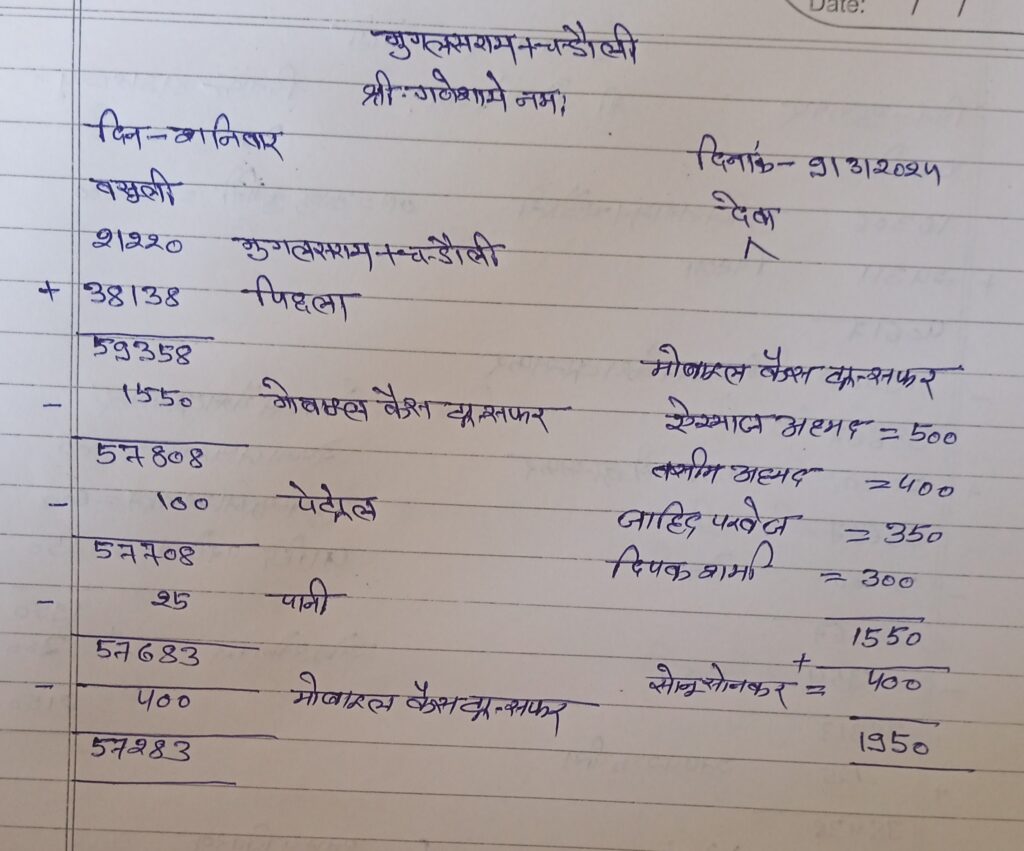 Date: / /
मुगलसराय + चन्डौली
श्री: गणेशाये नमः
दिन - शनिवार
दिनांक - 9/3/2024
वसुली
चेक
21220 मुगलसराय + चन्डौली
+ 38138 पिछला
59358
मोबाइल कैस ट्रान्सफर
- 1550 मोबाइल कैस ट्रान्सफर
= 500
57808
वसीम अहमद = 400
- 100 पेट्रोल
जाहिद परवेज = 350
57708
दिपक शर्मा = 300
- 25 पानी
1550
57683
+ सोनू सोनकर = 400
- 400 मोबाइल कैस ट्रान्सफर
1950
57283